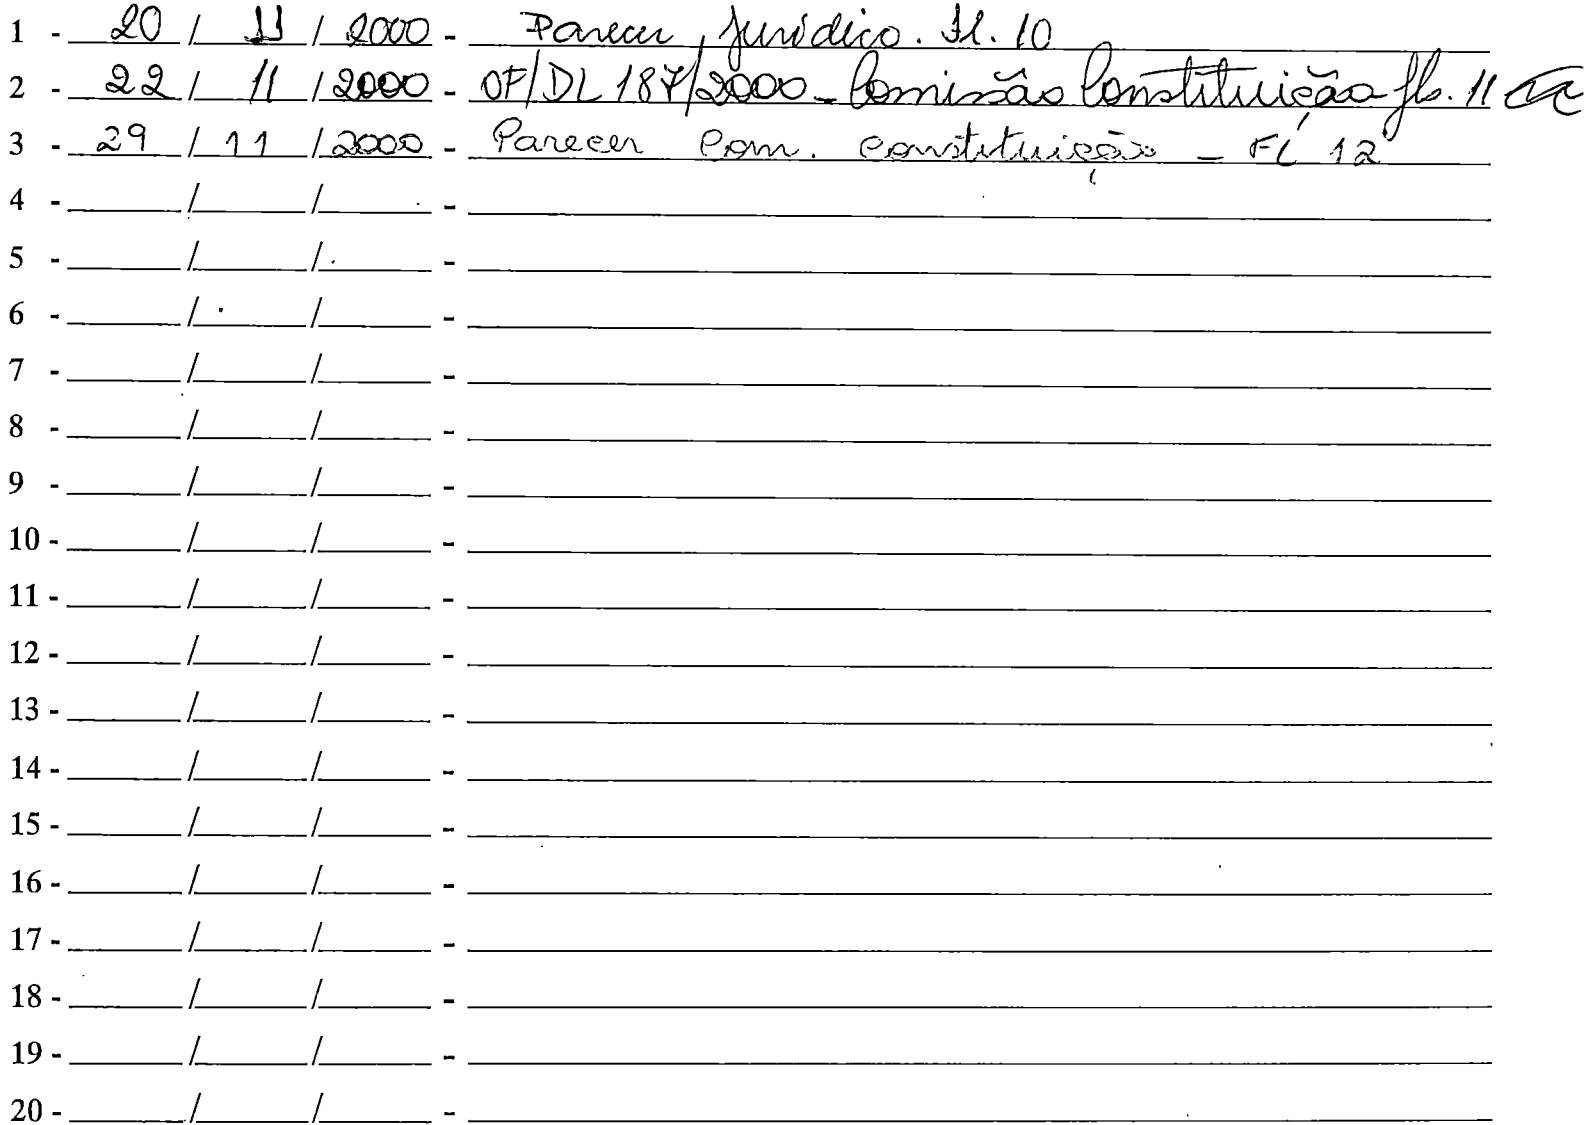 1 - 20 / 11 / 2000 - Parecer Jurídico. Fl. 10
2 - 22 / 11 / 2000 - OF/DL 187/2000 - Comissão Constituição fls. 11
3 - 29 / 11 / 2000 - Parecer Com. Constituição - Fl 12
4 - ____/____/____ - ____
5 - ____/____/____ - ____
6 - ____/____/____ - ____
7 - ____/____/____ - ____
8 - ____/____/____ - ____
9 - ____/____/____ - ____
10 - ____/____/____ - ____
11 - ____/____/____ - ____
12 - ____/____/____ - ____
13 - ____/____/____ - ____
14 - ____/____/____ - ____
15 - ____/____/____ - ____
16 - ____/____/____ - ____
17 - ____/____/____ - ____
18 - ____/____/____ - ____
19 - ____/____/____ - ____
20 - ____/____/____ - ____